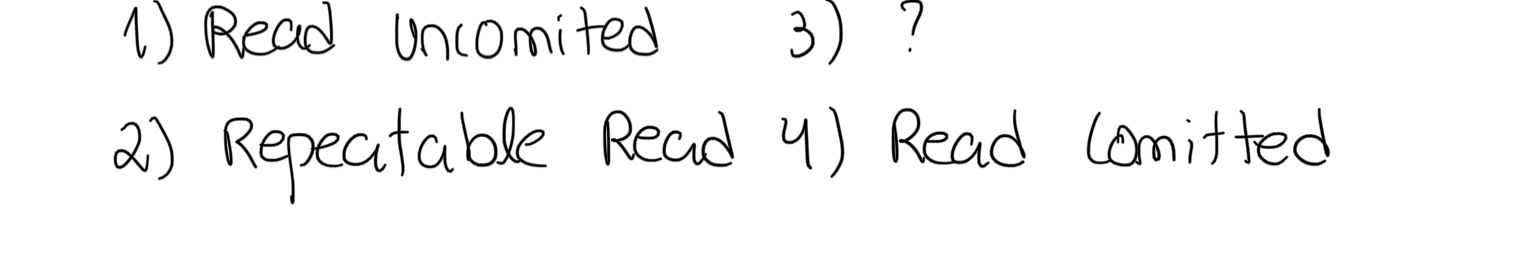 1) Read Uncomited 3) ?
2) Repeatable Read 4) Read Comitted